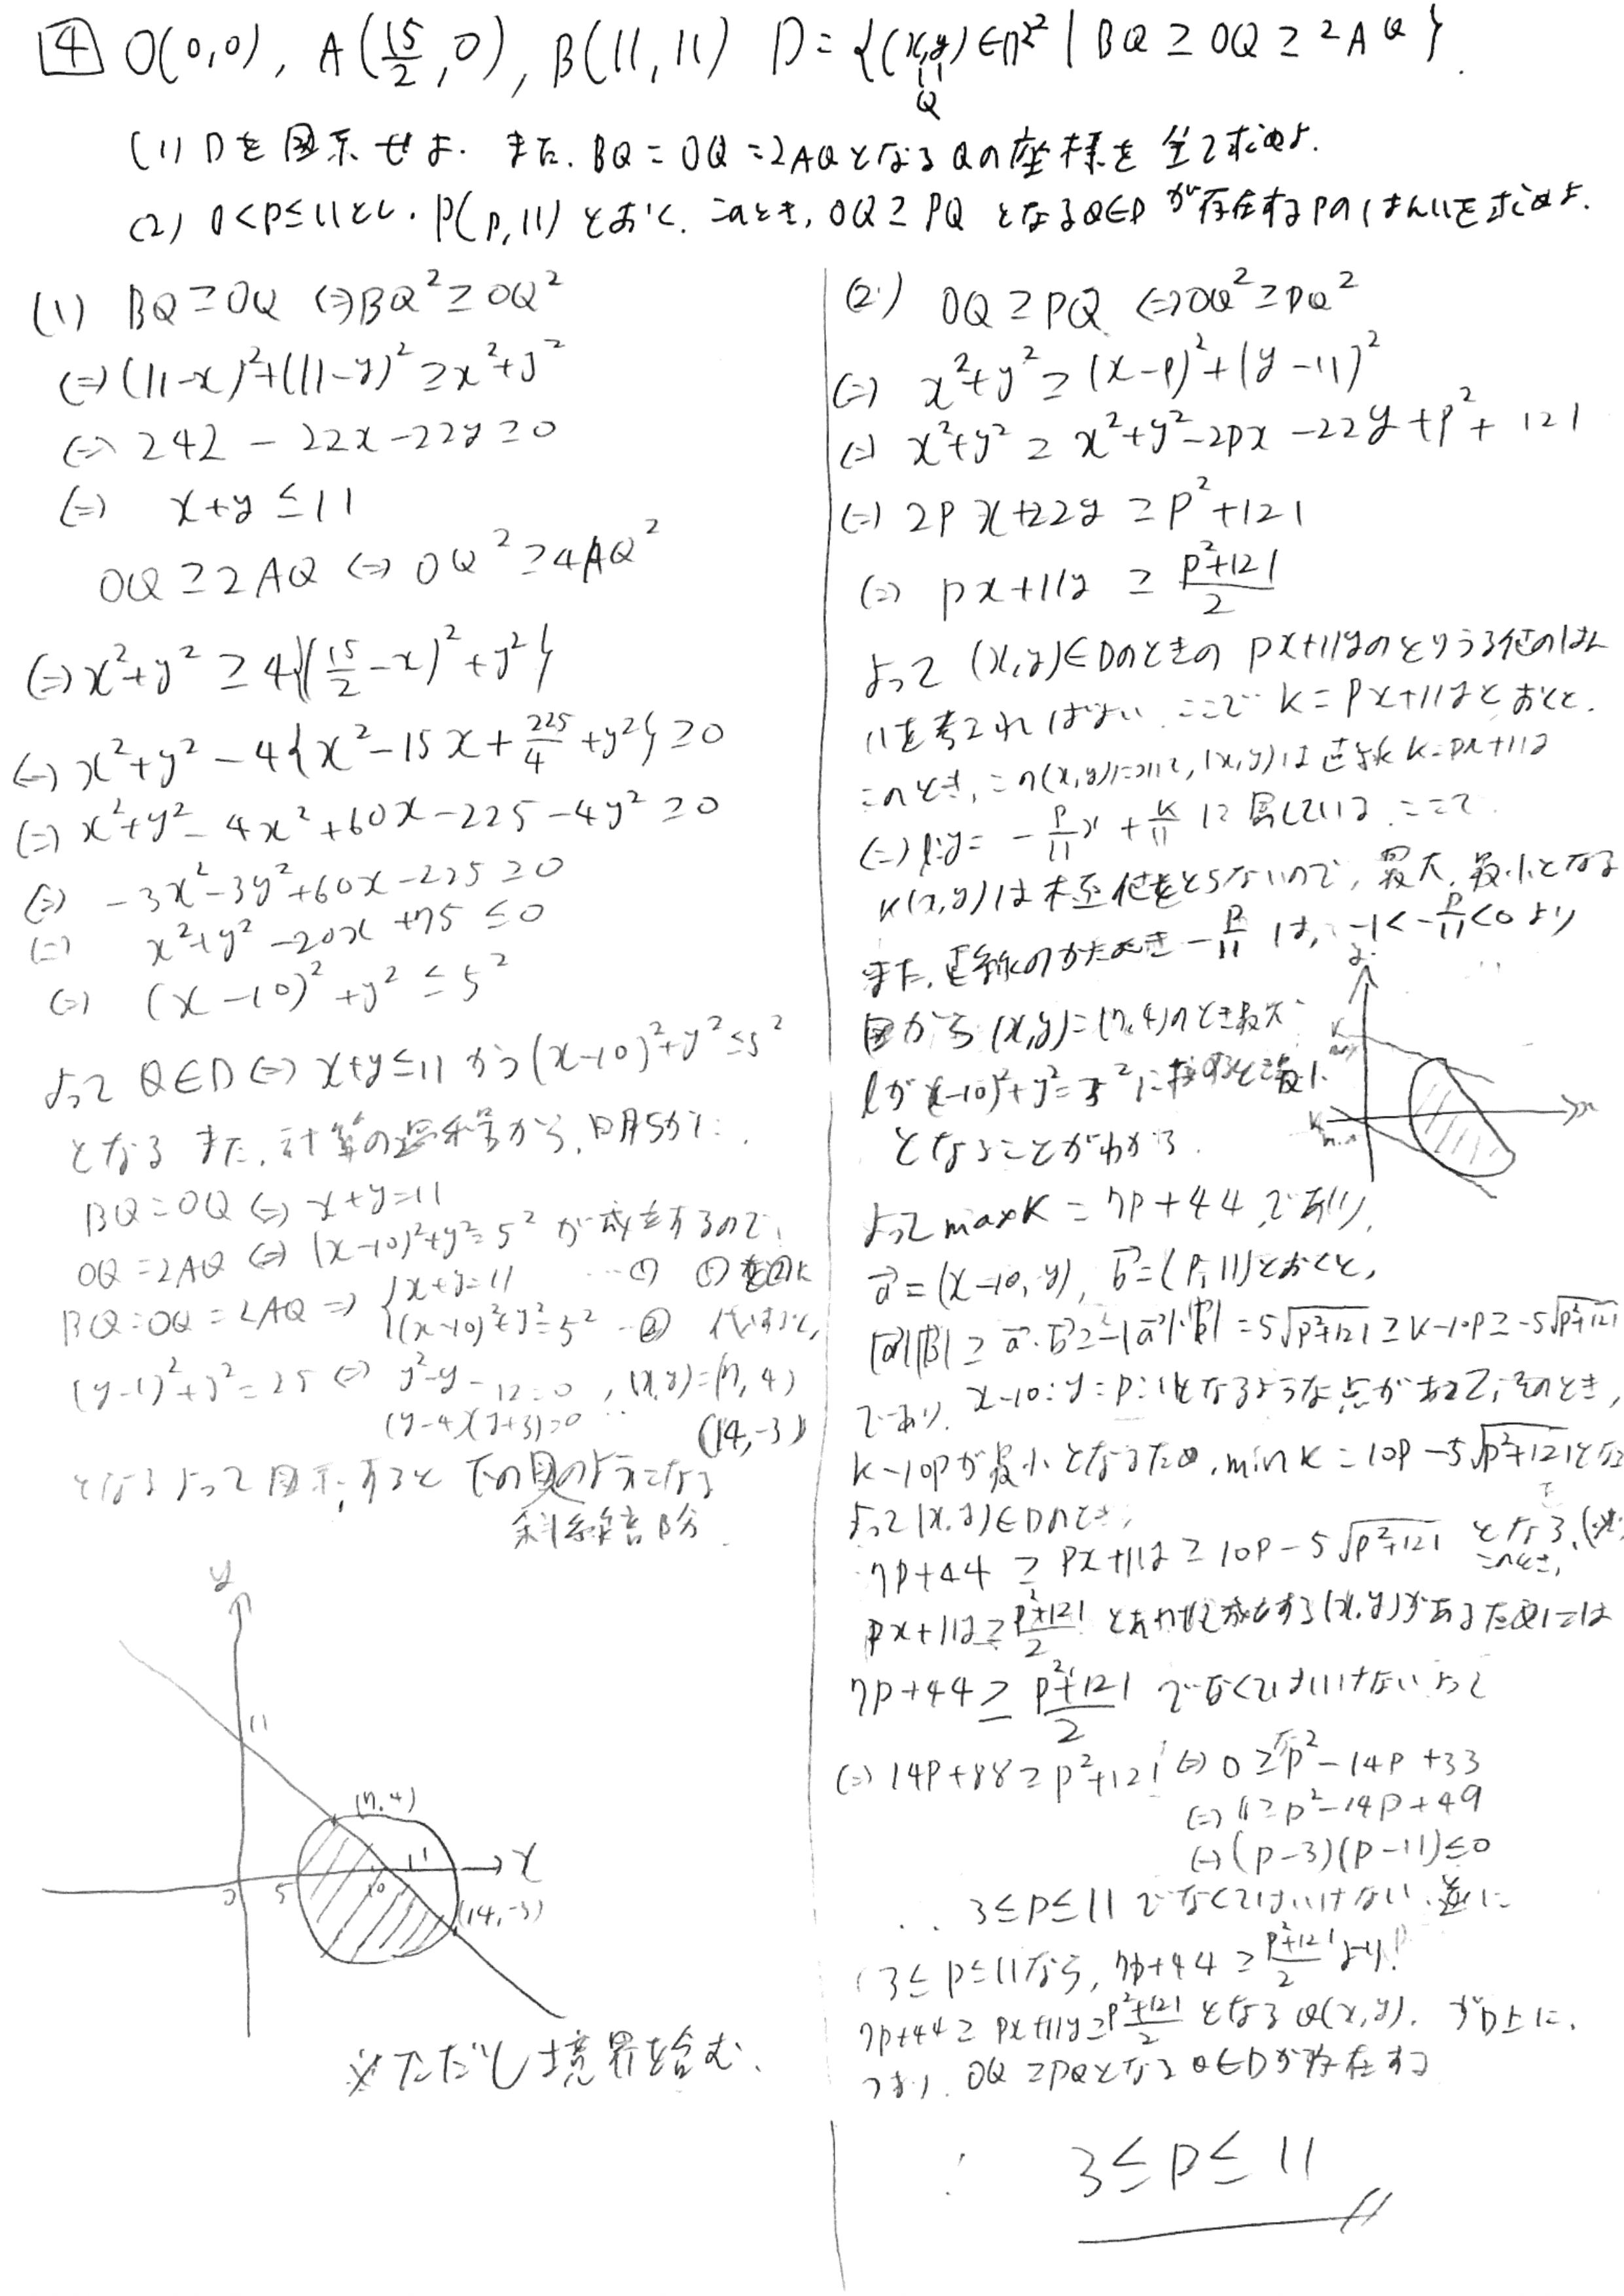 4 O(0,0), A(15/2, 0), B(11, 11) D = {(x,y)∈ℝ² | BQ ≥ OQ ≥ 2AQ}.
Q
(1) Dを図示せよ. また, BQ = OQ = 2AQとなるQの座標を全て求めよ.
(2) 0<p≤11とし, P(p, 11)とおく. このとき, OQ ≥ PQ となるQ∈Dが存在するpのはんいを求めよ.
(1) BQ ≥ OQ ⇔ BQ² ≥ OQ²
⇔ (11-x)²+(11-y)² ≥ x²+y²
⇔ 242 - 22x - 22y ≥ 0
⇔ x+y ≤ 11
OQ ≥ 2AQ ⇔ OQ² ≥ 4AQ²
⇔ x²+y² ≥ 4{(15/2 - x)² + y²}
⇔ x²+y² - 4{x² - 15x + 225/4 + y²} ≥ 0
⇔ x²+y² - 4x² + 60x - 225 - 4y² ≥ 0
⇔ -3x² - 3y² + 60x - 225 ≥ 0
⇔ x²+y² - 20x + 75 ≤ 0
⇔ (x-10)² + y² ≤ 5²
よって Q∈D ⇔ x+y≤11 かつ (x-10)²+y²≤5²
となる また, 計算の過程から, 明らかに
BQ = OQ ⇔ x+y=11
OQ = 2AQ ⇔ (x-10)²+y²=5² が成立するので,
BQ=OQ=2AQ ⇒ {x+y=11 … ① ①を②に
(x-10)²+y²=5² … ② 代入すると,
(y-1)²+y²=25 ⇔ y²-y-12=0, (x,y)=(7,4)
(y-4)(y+3)=0 (14,-3)
となる よって 図示すると 下の図のようになる
斜線部分
y
11
(7,4)
O 5 10 11 x
(14,-3)
※ただし境界を含む.
(2) OQ ≥ PQ ⇔ OQ² ≥ PQ²
⇔ x²+y² ≥ (x-p)²+(y-11)²
⇔ x²+y² ≥ x²+y²-2px-22y+p²+121
⇔ 2px+22y ≥ p²+121
⇔ px+11y ≥ (p²+121)/2
よって (x,y)∈Dのときの px+11yのとりうる値のはん
いを考えればよい. ここで k=px+11yとおくと.
このとき, この(x,y)について, (x,y)は直線 k=px+11y
⇔ l:y = -p/11 x + k/11 に属している. ここで
k(x,y)は をとらないので, 最大, 最小となる
また, 直線のかたむき -p/11 は, -1<-p/11<0 より
図から (x,y)=(7,4)のとき最大
lが(x-10)²+y²=5²に接するとき最小
となることがわかる.
y
k max
k min
x
よって max k = 7p+44 であり,
a→ = (x-10, y), b→ = (p, 11)とおくと,
|a→||b→| ≥ a→・b→ ≥ -|a→||b→| = 5√(p²+121) ≥ k-10p ≥ -5√(p²+121)
であり, x-10:y=p:11となるような点があって, そのとき,
k-10pが最小となるため, min k = 10p-5√(p²+121)とな
よって(x,y)∈Dのとき,
7p+44 ≥ px+11y ≥ 10p-5√(p²+121) となる.
このとき,
px+11y ≥ (p²+121)/2 とあわせて成立する(x,y)があるためには
7p+44 ≥ (p²+121)/2 でなくてはいけない よって
⇔ 14p+88 ≥ p²+121 ⇔ 0 ≥ p²-14p+33
⇔ ≥ p²-14p+49
⇔ (p-3)(p-11)≤0
∴ 3≤p≤11 でなくてはいけない. 逆に
3≤p≤11なら, 7p+44 ≥ (p²+121)/2 より
7p+44 ≥ px+11y ≥ (p²+121)/2 となる Q(x,y). がD上に,
つまり. OQ ≥ PQとなる Q∈Dが存在する
∴ 3≤p≤11